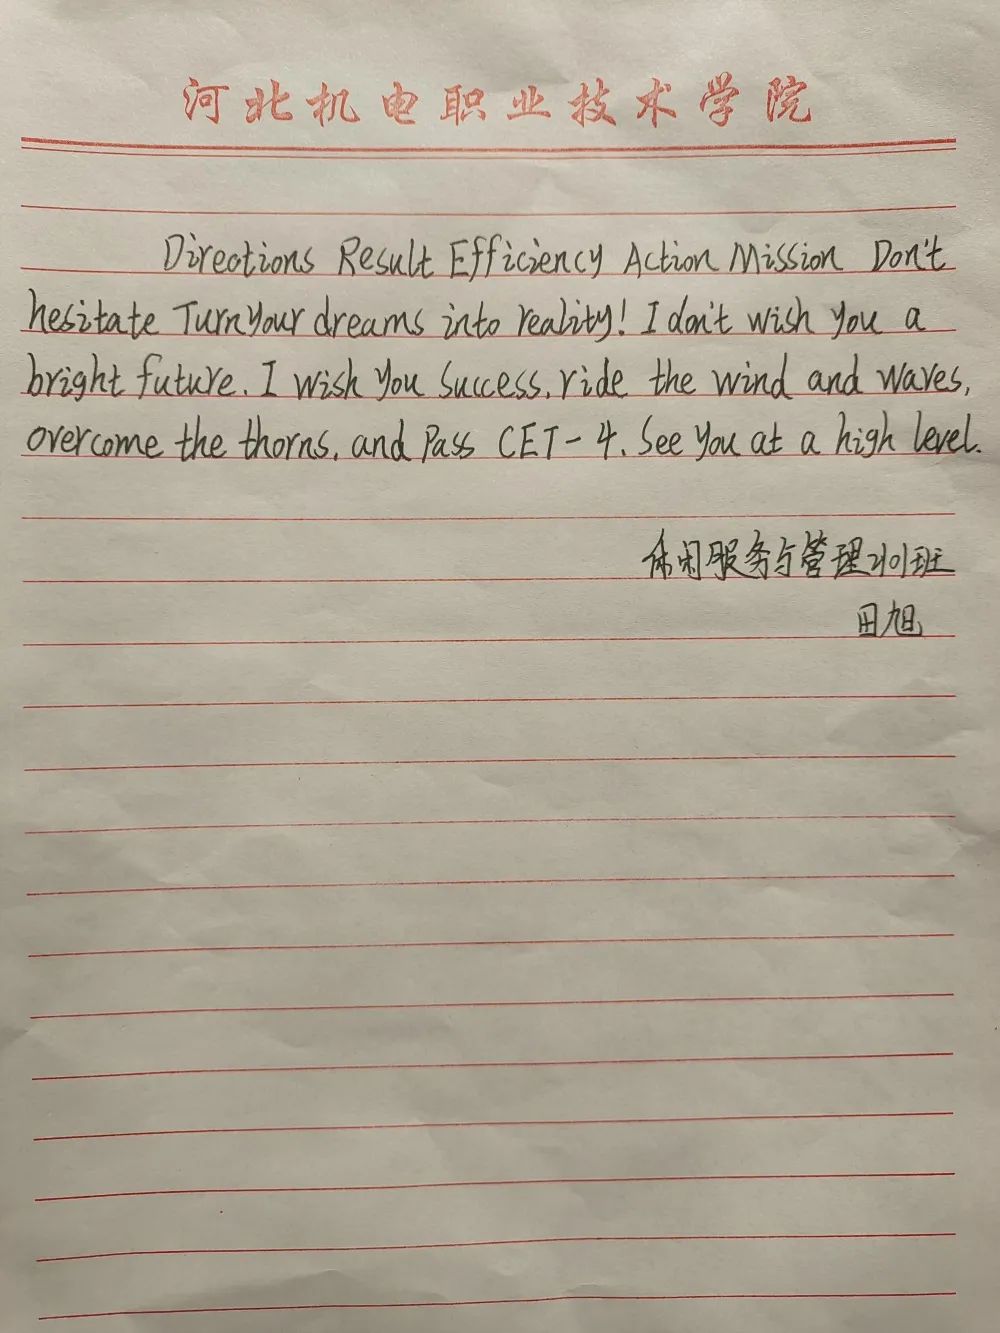 河北机电职业技术学院
Directions Result Efficiency Action Mission Don't
hesitate Turn your dreams into reality! I don't wish you a
bright future. I wish you success, ride the wind and waves,
overcome the thorns, and pass CET-4. See you at a high level.
休闲服务与管理2101班
田旭